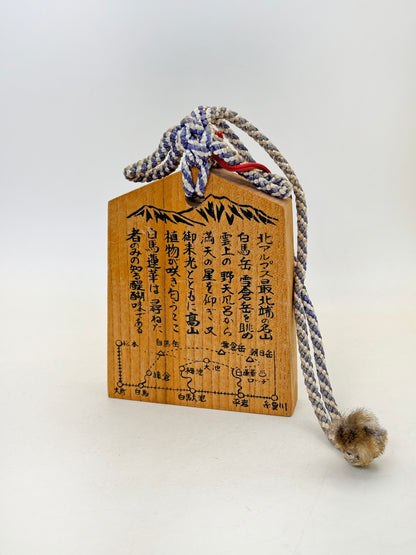 北アルプス最北端の名山
白馬岳 雪倉岳を眺め
雲上の野天風呂から
満天の星を仰ぎ、又
御来光とともに高山
植物が咲き匂うここ
白馬蓮華は尋ねた
者のみの知る醍醐味である
松本
白馬岳
雪倉岳
朝日岳
大池
鎌倉
栂池
大町
白馬
白馬大池
平岩
糸魚川